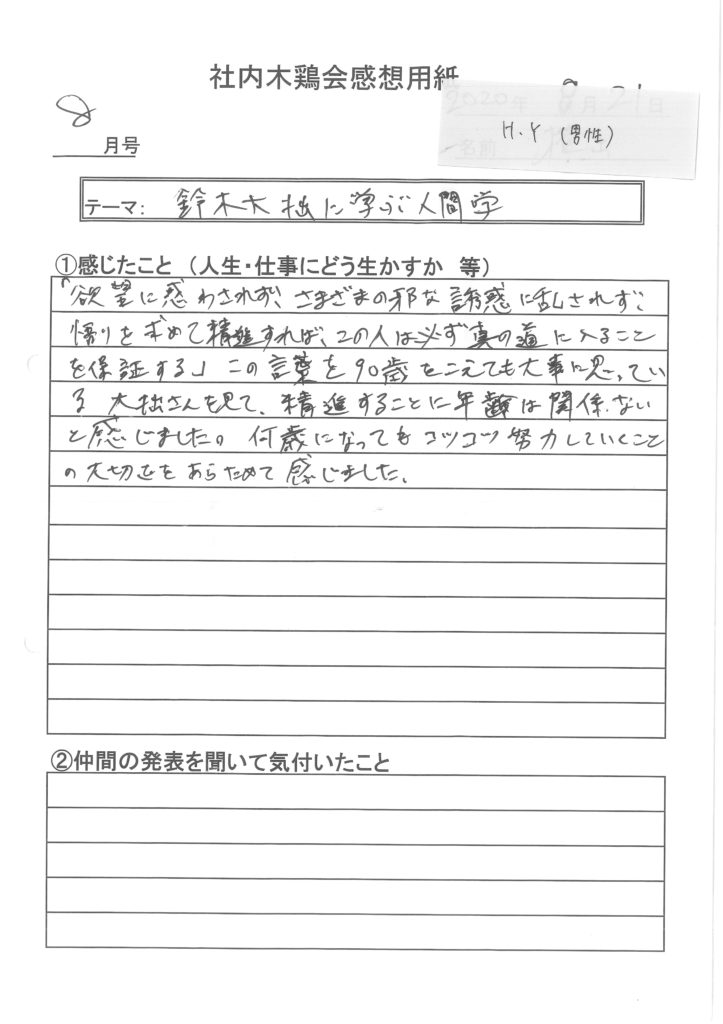 社内木鶏会感想用紙
2020年 8月21日
H.Y (男性)
名前
8
月号
テーマ: 鈴木大拙に学ぶ人間学
①感じたこと（人生・仕事にどう生かすか 等）
「欲望に惑わされず、さまざまの邪な誘惑に乱されず、
悟りを求めて精進すれば、この人は必ず真の道に入ること
を保証する」この言葉を90歳をこえても大事に思ってい
る 大拙さんを見て、精進することに年齢は関係ない
と感じました。何歳になってもコツコツ努力していくこと
の大切さをあらためて感じました。
②仲間の発表を聞いて気付いたこと